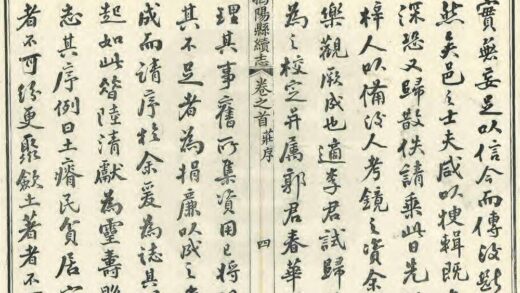 實無妄足以信今而傳後斷
然矣邑之士夫咸以輯既
深恐又歸散佚請乘此日先
梓人以備後人考鏡之資余
樂觀厥成也適李君試歸
為之校定并属郭君春華
陽縣續志 卷之首 莊序 四
理其事舊所集資用已將
其不足者為捐廉以成之
成而請序於余爰為誌其
起如此昔陸清獻為靈壽
志其序例曰土瘠民貧居
者不可紛更聚斂土著者不